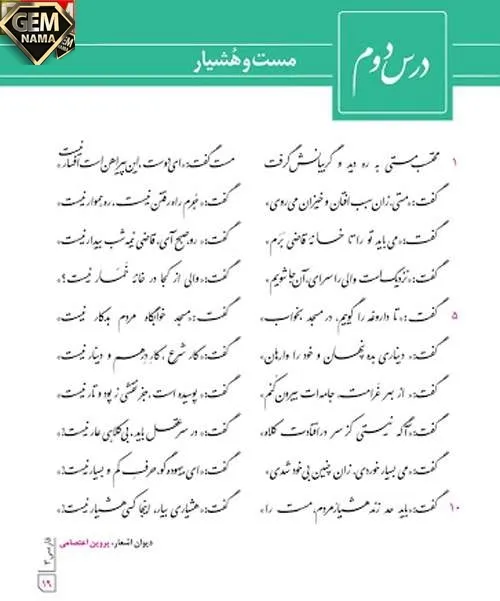 GEM
NAMA
درس دوم
مست و هُشیار
۱ محتسب مستی به ره دید و گریبانش گرفت مست گفت: «ای دوست، این پیراهن است افسار نیست»
گفت: «مستی، زان سبب افتان و خیزان می‌روی» گفت: «جُرم راه رفتن نیست، ره هموار نیست»
گفت: «می‌باید تو را تا خانهٔ قاضی بَرَم» گفت: «رو صبح آی، قاضی نیمه شب بیدار نیست»
گفت: «نزدیک است والی را سرای، آن جا شویم» گفت: «والی از کجا در خانهٔ خَمّار نیست؟»
۵ گفت: «تا داروغه را گوییم، در مسجد بخواب» گفت: «مسجد خوابگاه مردم بدکار نیست»
گفت: «دیناری بده پنهان و خود را وارهان» گفت: «کار شرع، کار درهم و دینار نیست»
گفت: «از بهر غرامت، جامه‌ات بیرون کُنم» گفت: «پوسیده است، جز نقشی ز پود و تار نیست»
گفت: «آگه نیستی کز سر در افتادت کلاه» گفت: «در سر عقل باید، بی‌کلاهی عار نیست!»
گفت: «می بسیار خوردی، زان چنین بی‌خود شدی» گفت: «ای بیهوده‌گو، حرفِ کم و بسیار نیست!»
۱۰ گفت: «باید حد زند هشیار مردم، مست را» گفت: «هشیاری بیار، اینجا کسی هشیار نیست!»
دیوان اشعار، پروین اعتصامی
فارسی ۳
۱۹